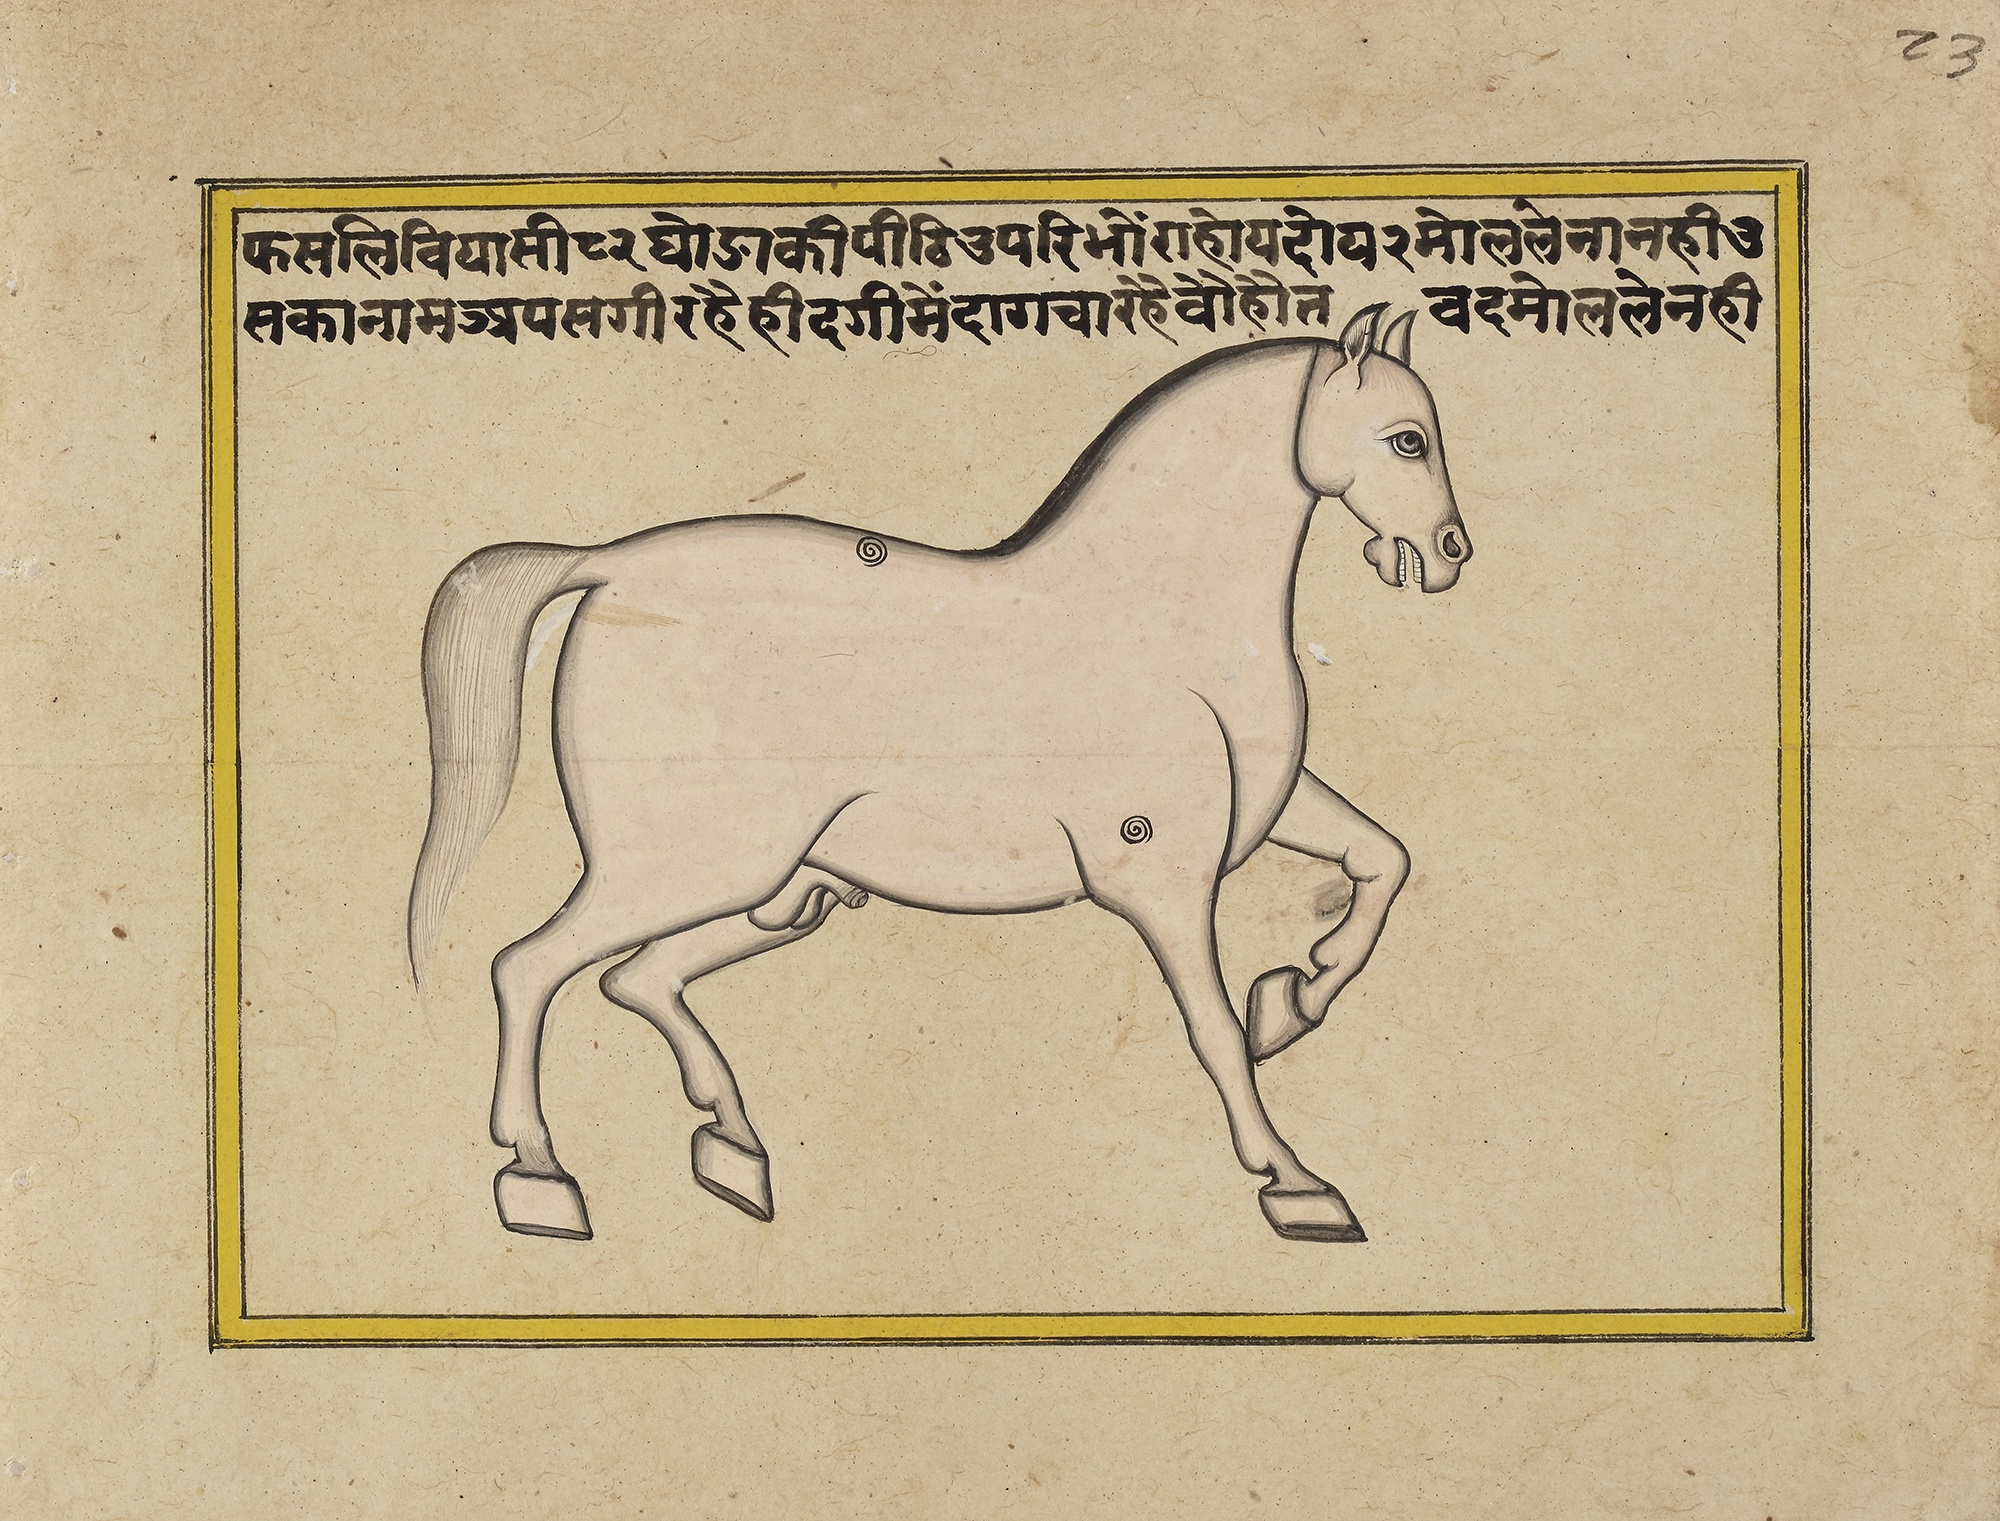 23
फसलिवियासी८२घोङाकीपीठिउपरिभोंराहोयदोय२मोललेनानहीउ
सकानामअपसगीरहैहीदगीमेंदागचारहैवोहोत वदमोललेनही